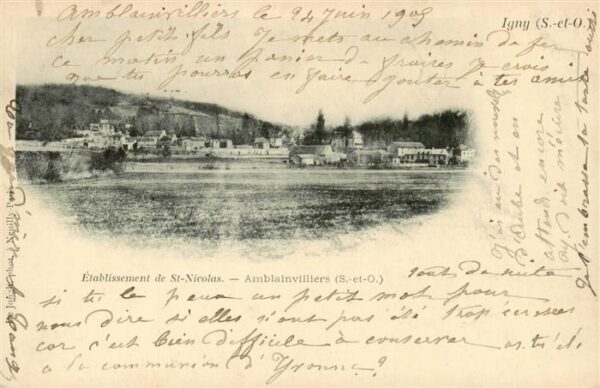 Amblainvilliers le 24 Juin 1905
Igny (S.-et-O.)
cher petit fils Je mets au chemin de fer
ce matin un panier de fraises Je crois
que tu pourras en faire goûter à tes amis
J'ai eu des nouvelles
d'Aube et en
attend encore
Je t'embrasse ta tante
Établissement de St-Nicolas. — Amblainvilliers (S.-et-O.)
tout de suite
si tu le peux un petit mot pour
nous dire si elles n'ont pas été trop écrasées
car c'est bien difficile à conserver as-tu été
à la communion d'Yvonne?